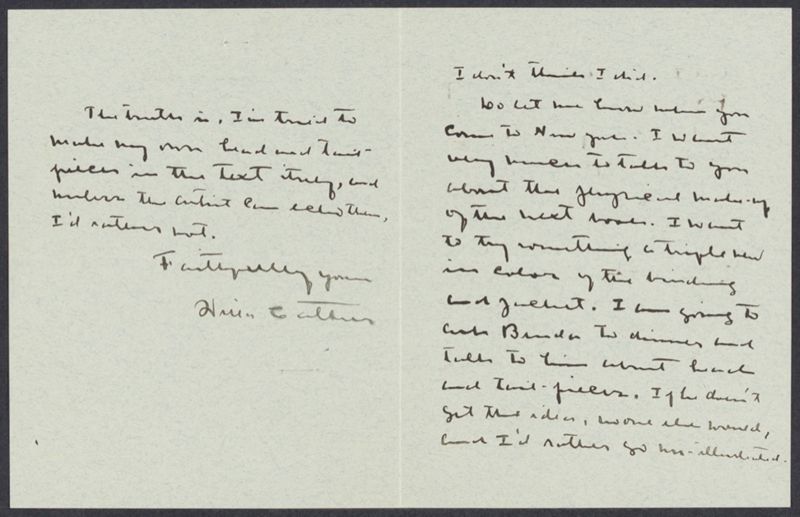 I don't think I did.
Do let me know when you
come to New York. I want
very much to talk to you
about the physical make-up
of the next book. I want
to try something a trifle new
in color of the binding
and jacket. I am going to
ask Benda to dinner and
talk to him about head
and tail-pieces. If he doesn't
get the idea, no one else would,
and I'd rather go un-illustrated.
The truth is, I've tried to
make my own head and tail-
pieces in the text itself, and
unless the artist can echo them,
I'd rather not.
Faithfully yours
Willa Cather